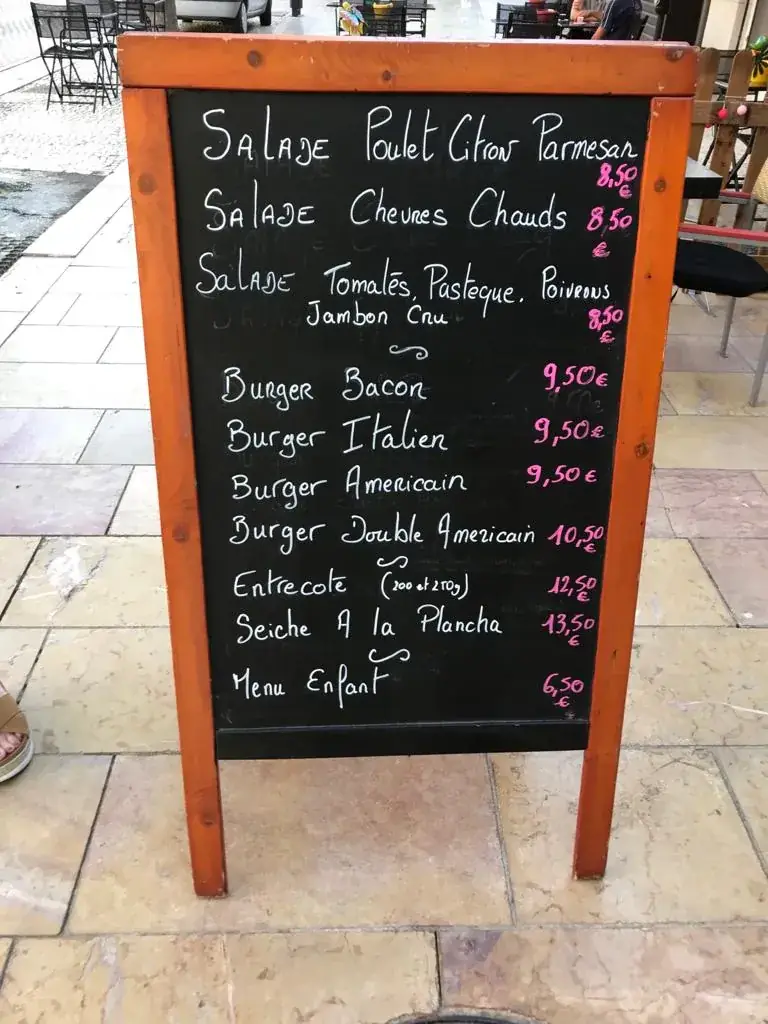 SALADE Poulet Citron Parmesan 8,50 €
SALADE Chevres Chauds 8,50 €
SALADE Tomates, Pasteque, Poivrons
Jambon Cru 8,50 €
Burger Bacon 9,50 €
Burger Italien 9,50 €
Burger Americain 9,50 €
Burger Double Americain 10,50 €
Entrecote (200 et 250g) 12,50 €
Seiche A la Plancha 13,50 €
Menu Enfant 6,50 €